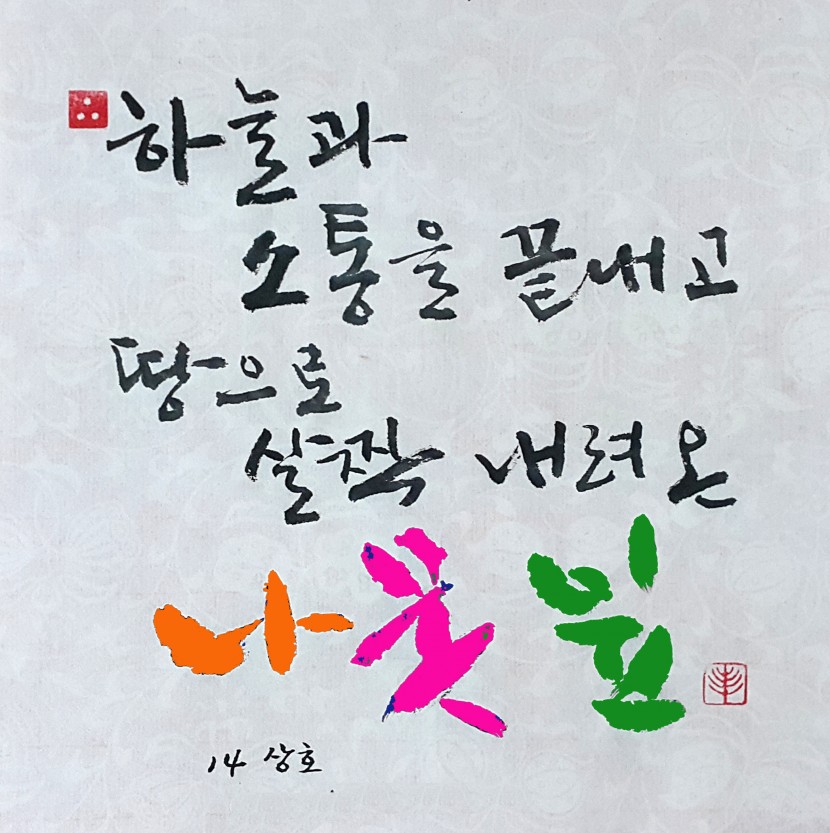 하늘과
소통을 끝내고
땅으로
살짝 내려온
나뭇잎
14 상호